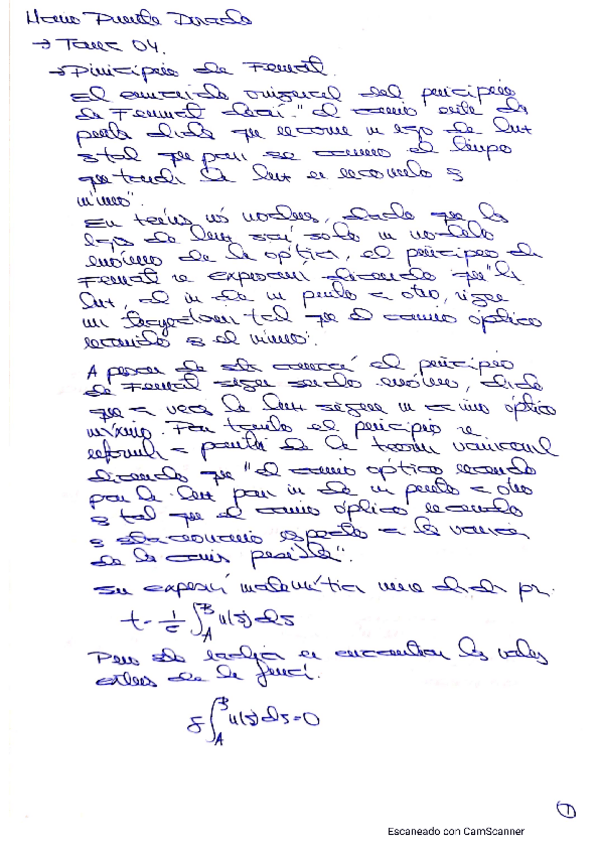 → Tema 04.
→ Principio de Fermat.
El enunciado original del principio
de Fermat decía: "El camino entre dos
puntos que recorre un rayo de luz
es tal que para ese camino el tiempo
que tarda la luz en recorrerlo es
mínimo".
En términos más modernos, dado que los
rayos de luz son solo un modelo
de la óptica, el principio de
Fermat se expresaría diciendo que "la
luz, al ir de un punto a otro, sigue
una trayectoria tal que el camino óptico
recorrido es el mínimo".
A pesar de esta el principio
de Fermat sigue siendo erróneo, dado
que a veces la luz sigue un camino óptico
máximo. Por tanto el principio se
reformula a partir de la teoría variacional
diciendo que "el camino óptico recorrido
por la luz para ir de un punto a otro
es tal que el camino óptico recorrido
es estacionario respecto a la variación
de los caminos posibles".
Su expresión matemática viene dada por:
t = 1/c ∫_A^B n(s) ds
de encontrar los valores
de la función.
δ ∫_A^B n(s) ds = 0
1
Escaneado con CamScanner